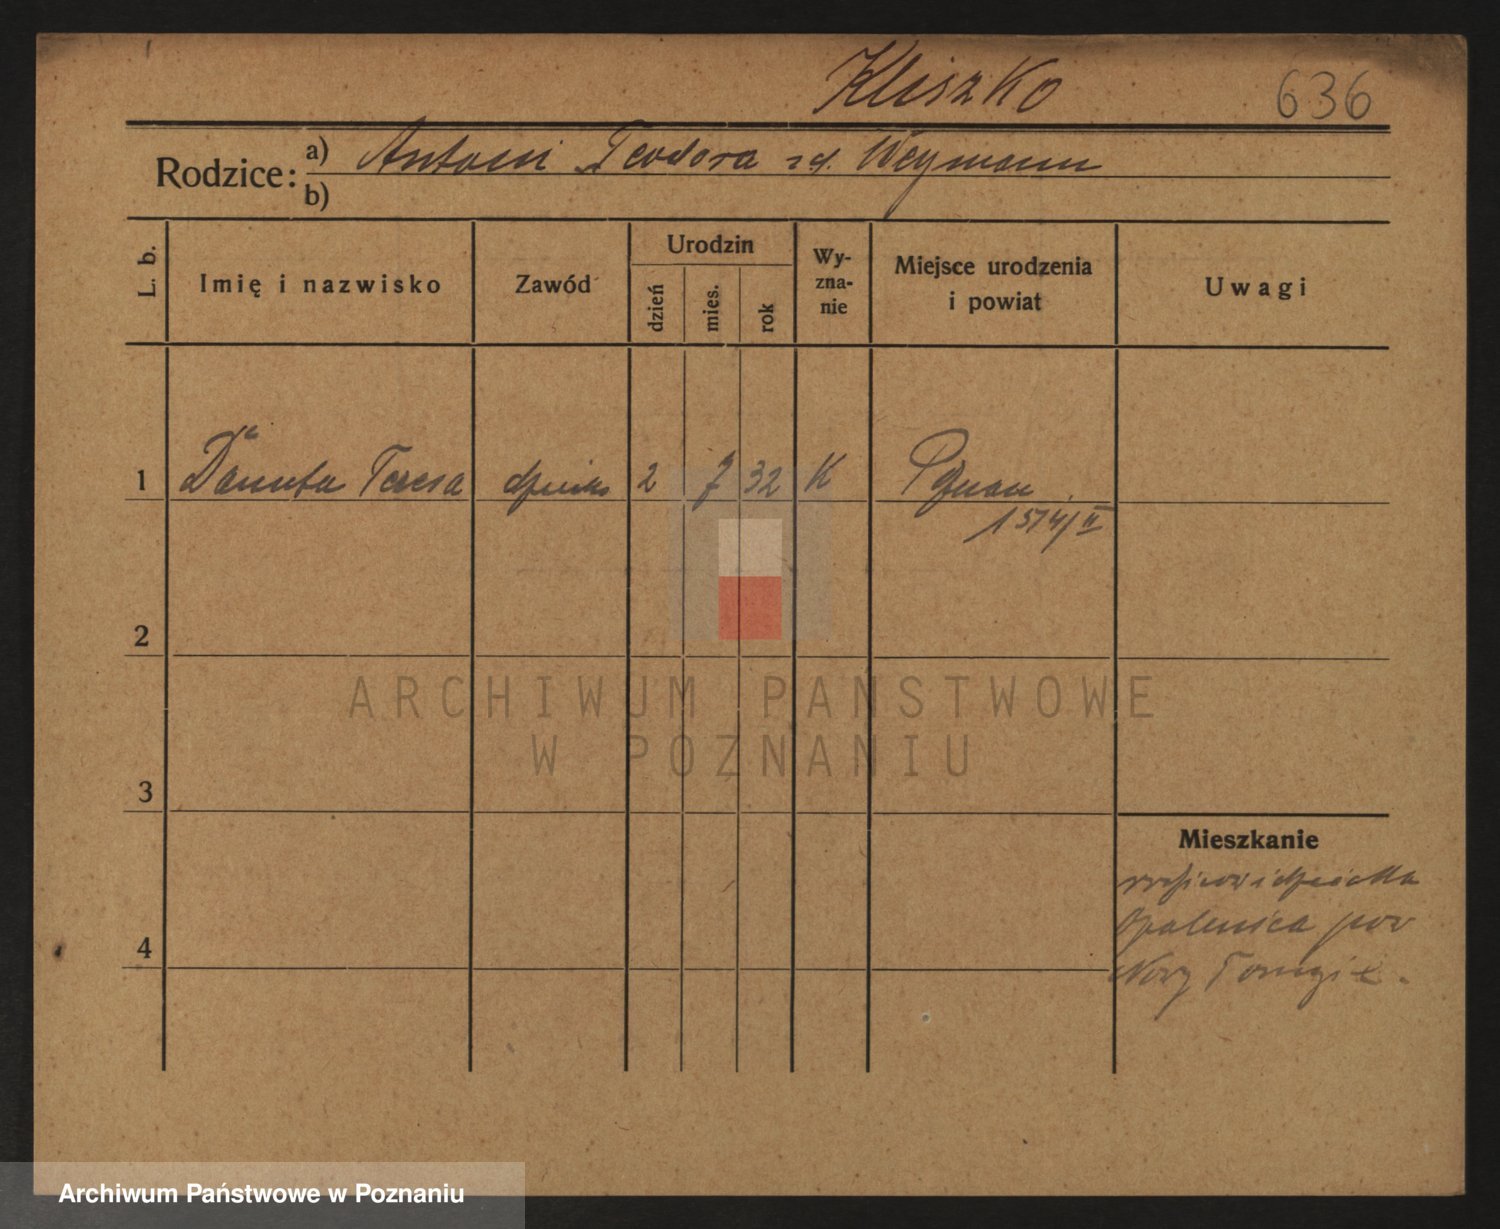 Kliszko 636
Rodzice: a) Antoni Teodora z d. Weymann
b)
L. b. Imię i nazwisko Zawód Urodzin dzień mies. rok Wy-zna-nie Miejsce urodzenia i powiat Uwagi
1 Danuta Teresa 2 7 32 K Poznań
1574/II
2
ARCHIWUM PAŃSTWOWE
W POZNANIU
3
Mieszkanie
Opalenica pow
4
Nowy Tomyśl.
Archiwum Państwowe w Poznaniu